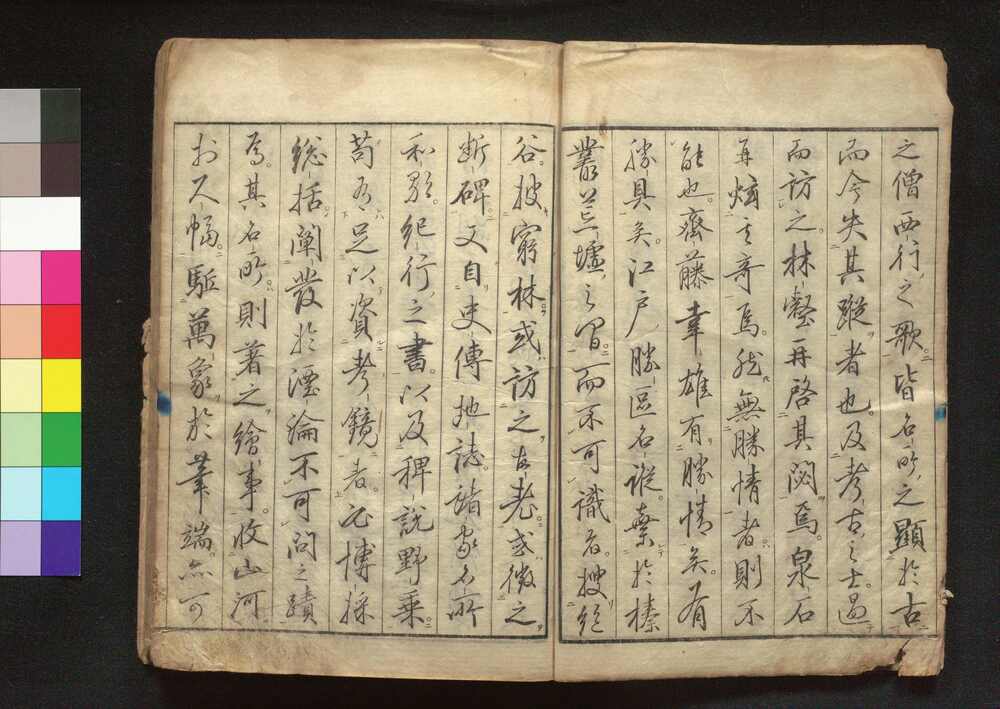 之僧西行之歌皆名所之顯於古
而今失其蹤者也及考古之士過
而訪之林壑再啓其閟焉泉石
再炫其奇焉然無勝情者則不
能也齋藤幸雄有勝情矣有
勝具矣江戸勝區名蹤棄於榛
叢荒墟之間而不可識者搜絶
谷披窮林或訪之古老或徵之
斷碑又自史傳地誌諸家名所
和歌紀行之書以及稗説野乘
苟有足以資考鏡者既博採
總括闡發於湮淪不可問之蹟
焉其名所則著之繪事收山河
於尺幅驅萬象於筆端亦可